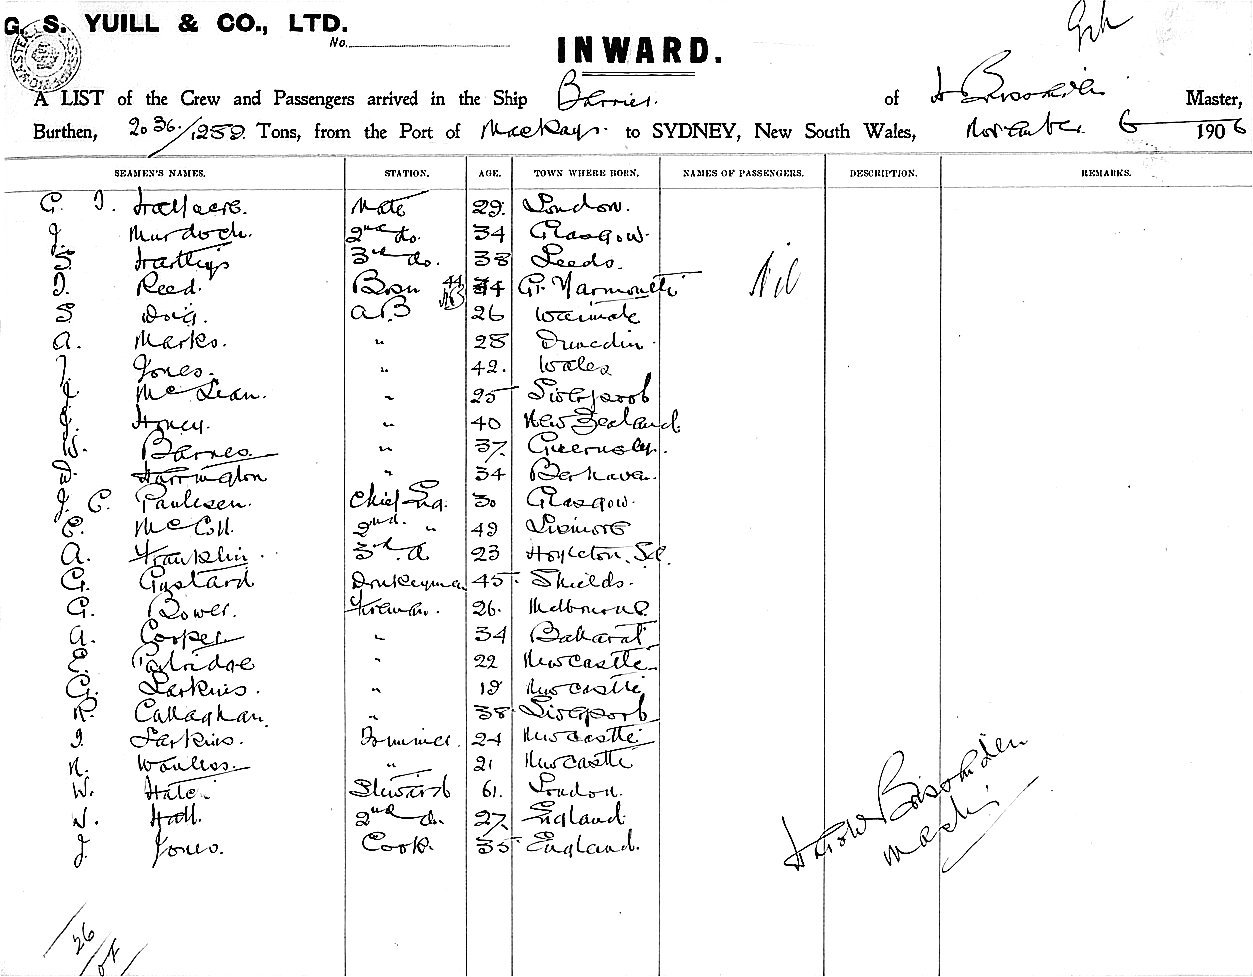 G. S. YUILL & CO., LTD.
No.
INWARD.
A LIST of the Crew and Passengers arrived in the Ship Barrier. of Master,
Burthen, 2036/1259 Tons, from the Port of Mackay to SYDNEY, New South Wales, November 6 1906
SEAMEN'S NAMES. STATION. AGE. TOWN WHERE BORN. NAMES OF PASSENGERS. DESCRIPTION. REMARKS.
Mate 29. London.
J. Murdoch. 2nd do. 34 Glasgow.
S. 3rd do. 38 Leeds.
Reed. Bosn 44 Gt. Yarmouth Nil
S Doig. A.B 26 Waimate
A. Marks. " 28 Dunedin
Jones. " 42. Wales
McLean. " 25 Liverpool
Honey. " 40 New Zealand.
W. Barnes " 37. Guernsey.
Harrington " 34 Berhaven.
J. C. Paulesen. Chief Eng. 30 Glasgow.
2nd. " 49 Lismore
A. Franklin. 3rd 23 Hoyleton, S.A.
G. Gustard Donkeyman 45. Shields.
G. Bower. Fireman. 26. Melbourne.
A. Cooper " 34 Balarat
E. Partridge " 22 Newcastle.
G. Larkins. " 19 Newcastle
R. Callaghan. " 38. Liverpool
Larkins. Trimmer. 24 Newcastle
" 21 Newcastle
W. Steward 61. London.
Hall. 2nd do. 27. England.
J. Jones. Cook. 35 England.
26